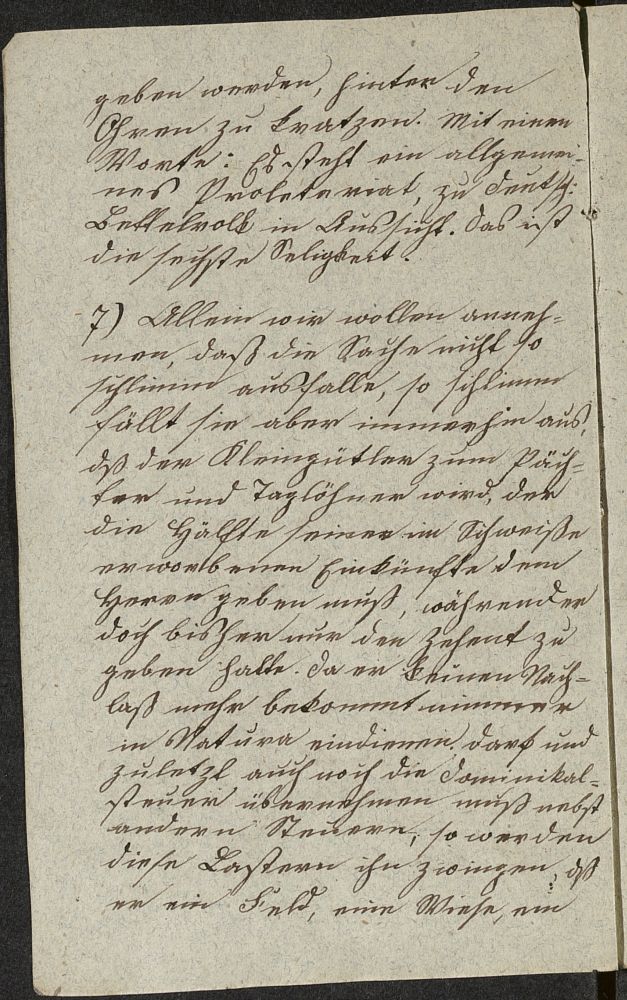 geben werden, hinter den
Ohren zu kratzen. Mit einem
Worte: Es steht ein allgemei-
nes Proletariat, zu deutsch:
Bettelvolk in Aussicht. Das ist
die sechste Seligkeit.
7) Allein wir wollen anneh=
men, daß die Sache nicht so
schlimm ausfalle, so schlimm
fällt sie aber immerhin aus,
dß der Kleingütler zum Päch=
ter und Taglöhner wird, der
die Hälfte seiner im Schweiße
erworbenen Einkünfte dem
Herrn geben muß, während er
doch bisher nur den Zehent zu
geben hatte. Da er keinen Nach=
laß mehr bekommt nimmer
in Natura eindienen darf und
zuletzt auch noch die Dominikal=
steuer übernehmen muß nebst
andern Steuern, so werden
diese Lasten ihn zwingen, dß
er ein Feld, eine Wiese, ein